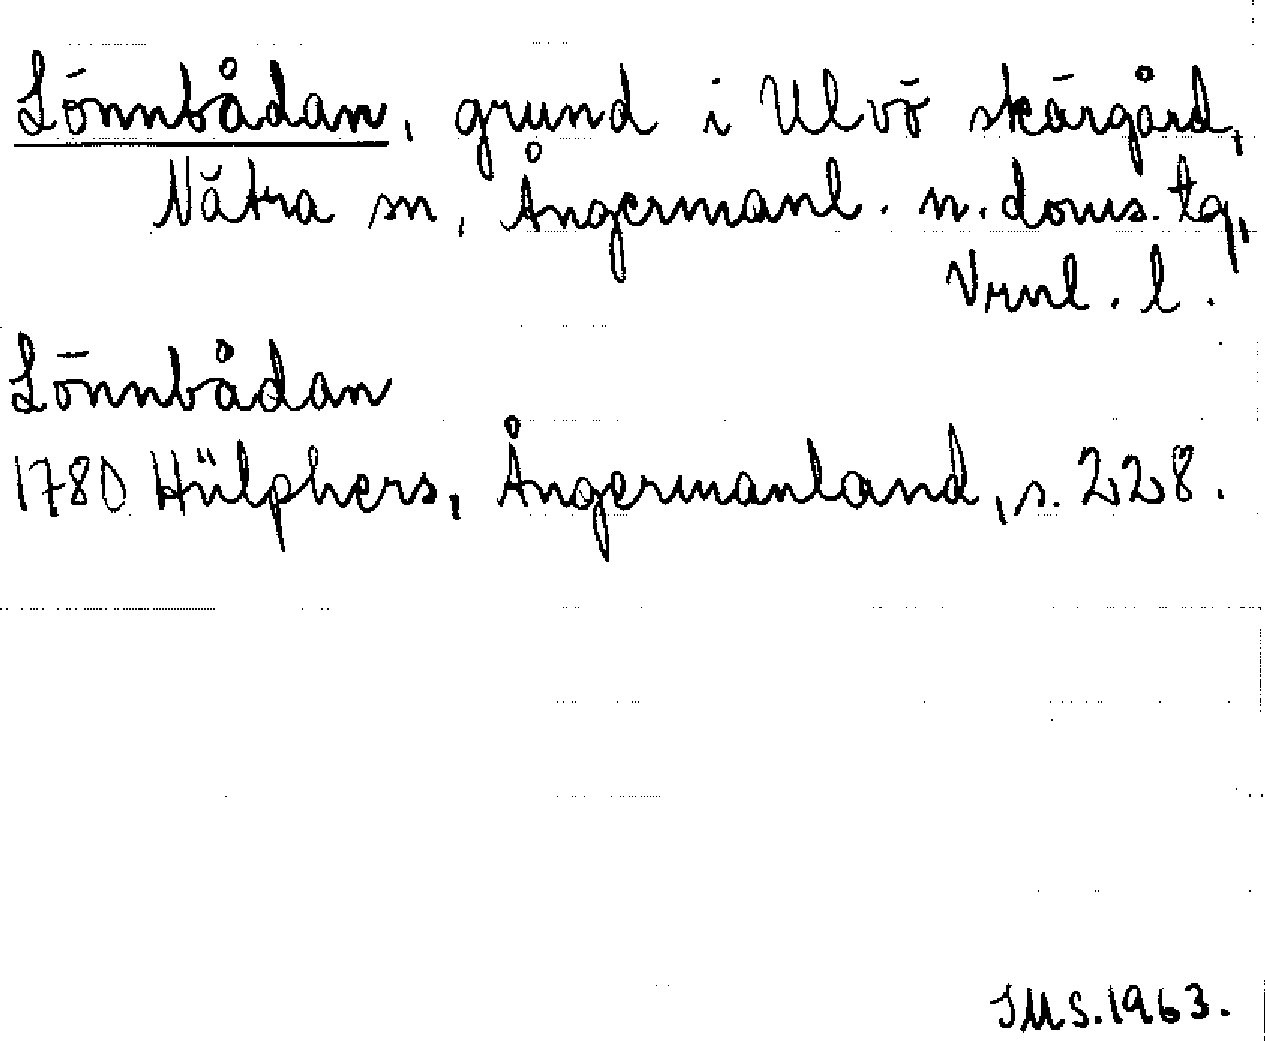 Lönnbådan, grund i Ulvö skärgård,
Nätra sn, Ångermanl. n. doms. tg,
Vrnl. l.
Lönnbådan
1780 Hülphers, Ångermanland, s. 228.
IMS. 1963.